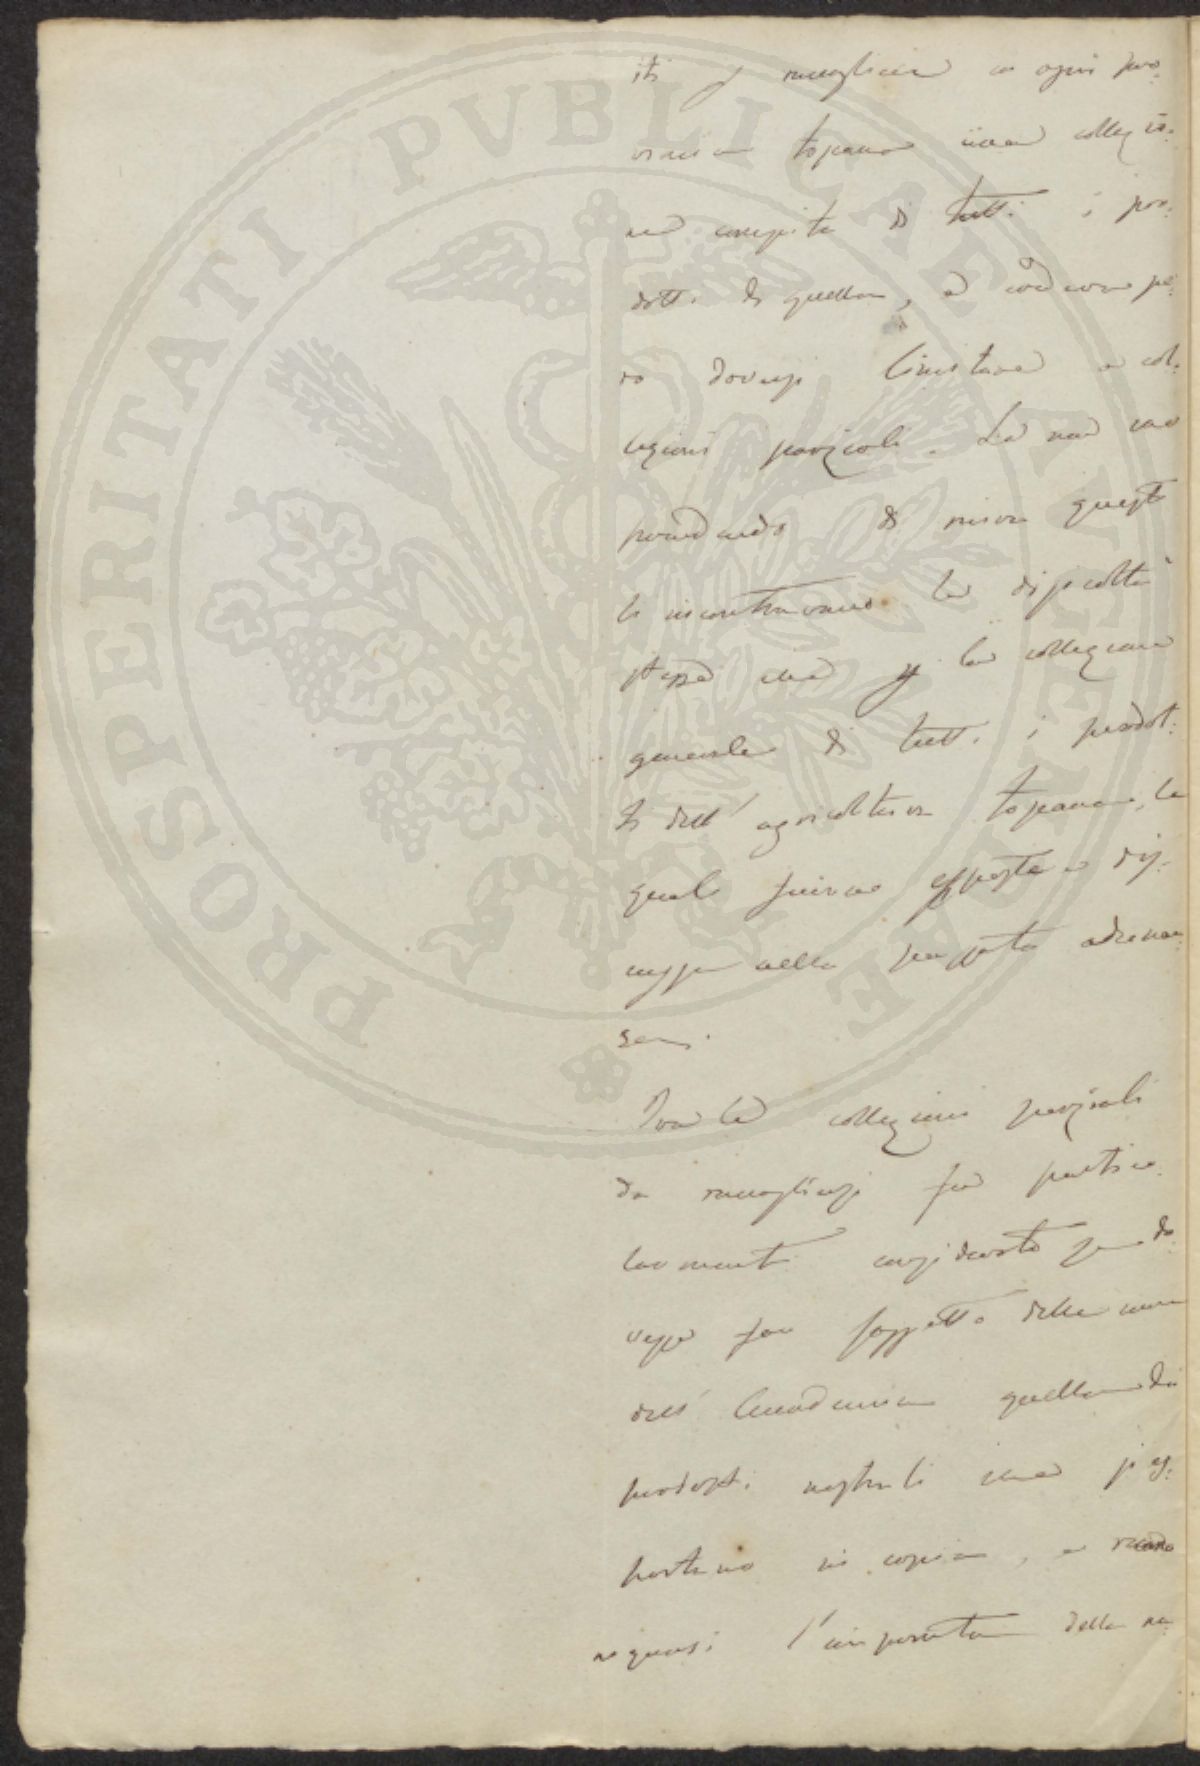 PROSPERITATI PVBLICAE AVGENDAE
iti p raccogliere in ogni pro-
vincia toscana una collezio-
ne compita di tutti i pro-
dotti di quella, e così come pe-
rò doversi limitare a col-
lezioni parziali. Le non
di queste
le incontravano le difficoltà
stesse che p la collezione
generale di tutti i prodot-
ti dell' agricoltura toscana, la
quale esposta e dis-
cussa nella adunan-
za.
Tra le collezioni parziali
da raccogliersi fu partico-
larmente considerato che do-
vesse far soggetto delle cure
dell' Accademia quella dei
prodotti nostrali che si es-
portano in copia, e
no quasi l' importanza della